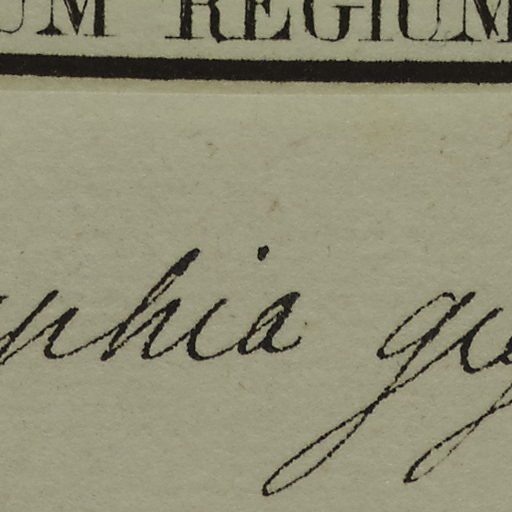 UM REGIUM
phia gy